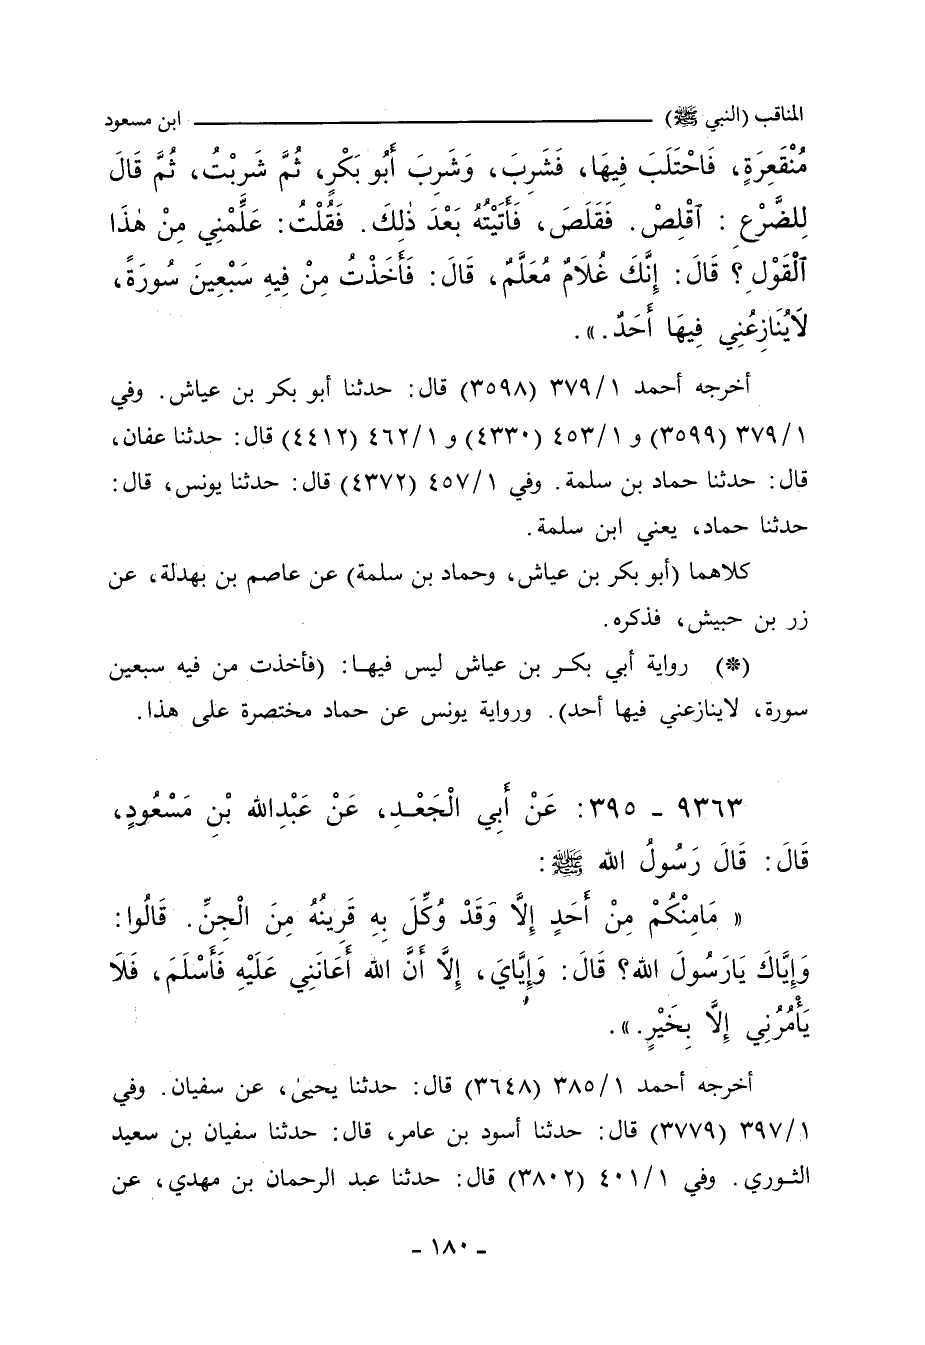 المناقب (النبي ﷺ) ــــــــــــــــــــ ابن مسعود
مُنْقَعِرَةٍ، فَاحْتَلَبَ فِيهَا، فَشَرِبَ، وَشَرِبَ أَبُو بَكْرٍ، ثُمَّ شَرِبْتُ، ثُمَّ قَالَ
لِلضَّرْعِ : ٱقْلِصْ. فَقَلَصَ، فَأَتَيْتُهُ بَعْدَ ذٰلِكَ. فَقُلْتُ: عَلِّمْنِي مِنْ هٰذَا
ٱلْقَوْلِ؟ قَالَ: إِنَّكَ غُلَامٌ مُعَلَّمٌ، قَالَ: فَأَخَذْتُ مِنْ فِيهِ سَبْعِينَ سُورَةً،
لَايُنَازِعُنِي فِيهَا أَحَدٌ.».
أخرجه أحمد ١/٣٧٩ (٣٥٩٨) قال: حدثنا أبو بكر بن عياش. وفي
١/٣٧٩ (٣٥٩٩) و ١/٤٥٣ (٤٣٣٠) و ١/٤٦٢ (٤٤١٢) قال: حدثنا عفان،
قال: حدثنا حماد بن سلمة. وفي ١/٤٥٧ (٤٣٧٢) قال: حدثنا يونس، قال:
حدثنا حماد، يعني ابن سلمة.
كلاهما (أبو بكر بن عياش، وحماد بن سلمة) عن عاصم بن بهدلة، عن
زر بن حبيش، فذكره.
(*) رواية أبي بكر بن عياش ليس فيها: (فأخذت من فيه سبعين
سورة، لاينازعني فيها أحد). ورواية يونس عن حماد مختصرة على هذا.
٩٣٦٣ - ٣٩٥: عَنْ أَبِي الْجَعْدِ، عَنْ عَبْدِالله بْنِ مَسْعُودٍ،
قَالَ: قَالَ رَسُولُ الله ﷺ:
« مَامِنْكُمْ مِنْ أَحَدٍ إِلَّا وَقَدْ وُكِّلَ بِهِ قَرِينُهُ مِنَ الْجِنِّ. قَالُوا:
وَإِيَّاكَ يَارَسُولَ الله؟ قَالَ: وَإِيَّايَ، إِلَّا أَنَّ الله أَعَانَنِي عَلَيْهِ فَأَسْلَمَ، فَلَا
يَأْمُرُنِي إِلَّا بِخَيْرٍ.».
أخرجه أحمد ١/٣٨٥ (٣٦٤٨) قال: حدثنا يحيىٰ، عن سفيان. وفي
١/٣٩٧ (٣٧٧٩) قال: حدثنا أسود بن عامر، قال: حدثنا سفيان بن سعيد
الثوري. وفي ١/٤٠١ (٣٨٠٢) قال: حدثنا عبد الرحمان بن مهدي، عن
- ١٨٠ -